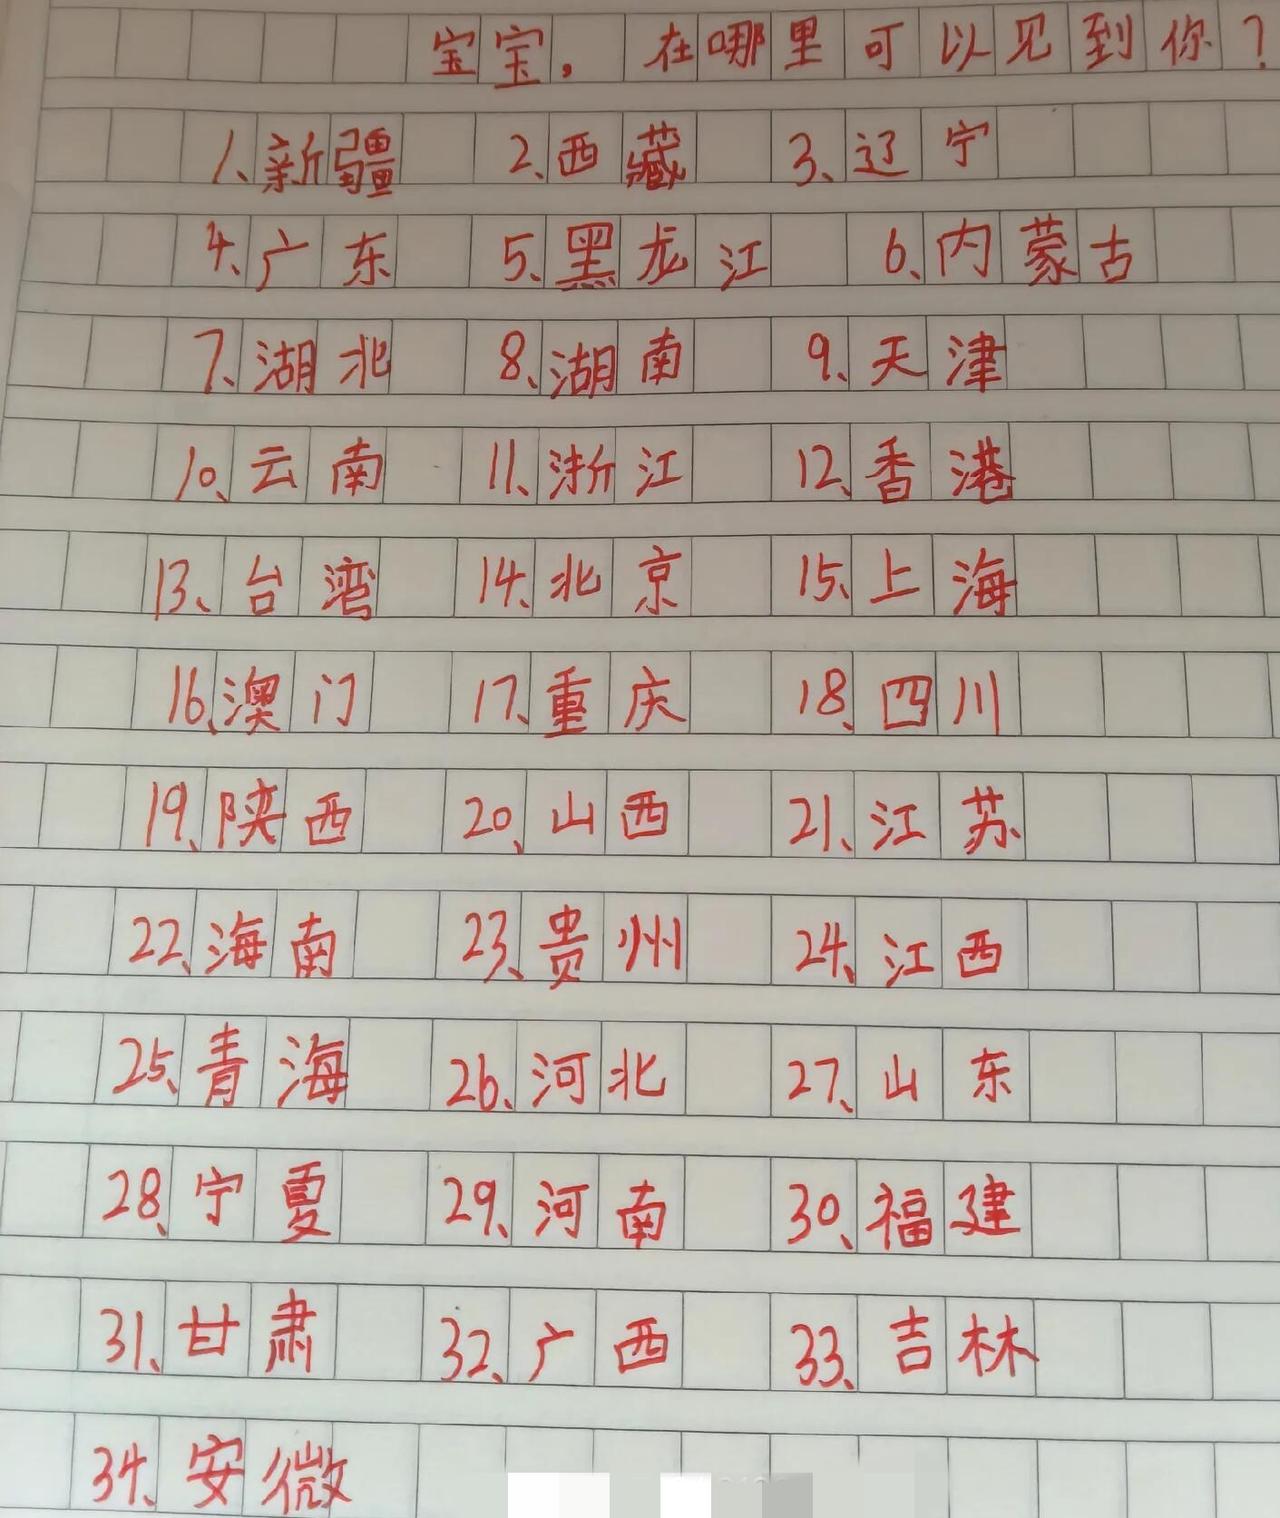 宝宝，在哪里可以见到你？
1、新疆 2、西藏 3、辽宁
4、广东 5、黑龙江 6、内蒙古
7、湖北 8、湖南 9、天津
10、云南 11、浙江 12、香港
13、台湾 14、北京 15、上海
16、澳门 17、重庆 18、四川
19、陕西 20、山西 21、江苏
22、海南 23、贵州 24、江西
25、青海 26、河北 27、山东
28、宁夏 29、河南 30、福建
31、甘肃 32、广西 33、吉林
34、安微